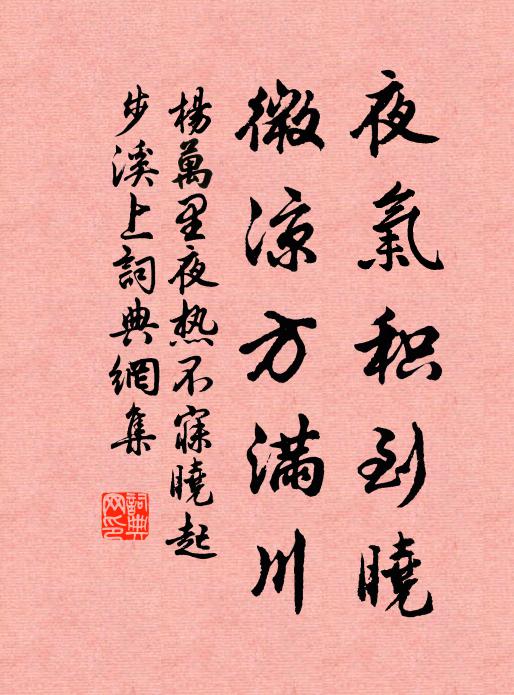 夜氣积到曉
微涼方满川
楊萬里夜热不寐曉起
步溪上詞典網集
詞典网印